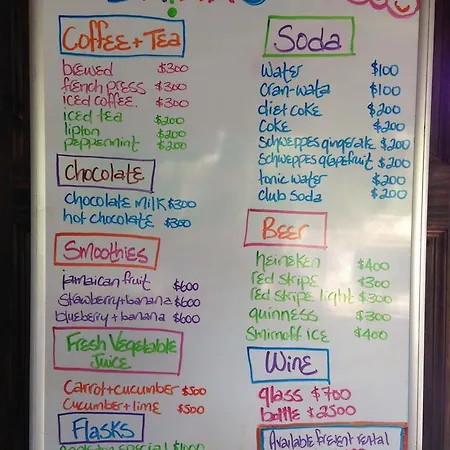 Coffee + Tea
brewed $300
french press $300
iced coffee. $300
iced tea $200
lipton $200
peppermint $200
Chocolate
chocolate milk $300
hot chocolate $300
Smoothies
jamaican fruit $600
strawberry + banana $600
blueberry + banana $600
Fresh Vegetable
Juice
Carrot + cucumber $500
Cucumber + lime $500
Flasks
special
Soda
water $100
cran-wata $100
diet coke $200
coke $200
schweppes gingerale $200
schweppes grapefruit $200
tonic water $200
club soda $200
Beer
heineken $400
red stripe $300
red stripe light $300
guinness $300
smirnoff ice $400
Wine
glass $700
bottle $2500
Available for rental